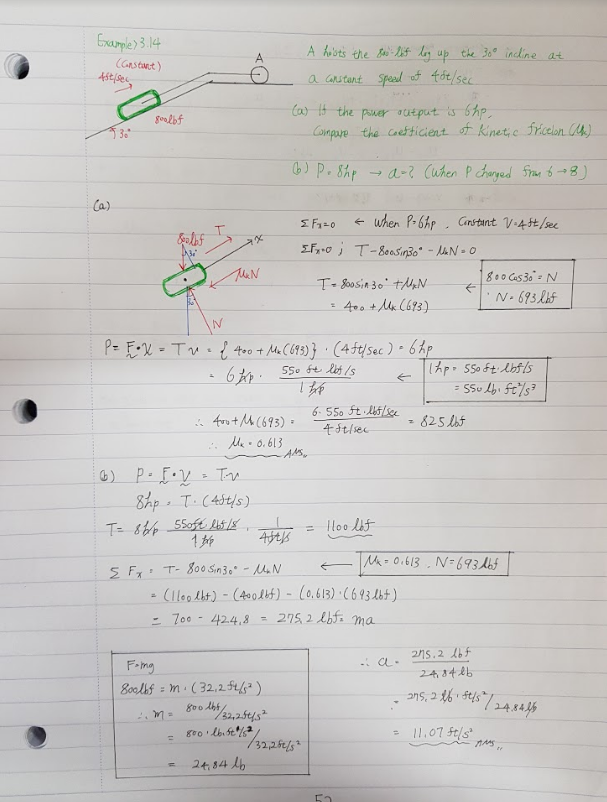 Example) 3.14
(Constant)
4ft/sec
A
800lbf
30°
A hoists the 800 lbf log up the 30° incline at
a constant speed of 4ft/sec
(a) If the power output is 6hp,
Compare the coefficient of Kinetic friction (Mk)
(b) P = 8hp → a=? (when P changed from 6→8)
(a)
800lbf
T
x
30°
MkN
30°
N
ΣFx=0 ← when P=6hp, Constant V=4ft/sec
ΣFx=0 ; T-800sin30° - MkN = 0
T = 800sin30° + MkN
= 400 + Mk(693)
←
800cos30° = N
∴ N = 693 lbf
P = F·V = Tv = {400 + Mk(693)} · (4ft/sec) = 6hp
= 6hp · 550 ft lbf/s / 1hp
←
1hp = 550 ft·lbf/s
= 550 lb·ft²/s³
∴ 400 + Mk(693) = 6·550 ft·lbf/sec / 4ft/sec = 825 lbf
∴ Mk = 0.613 ANS,,
(b) P = F·V = T·v
8hp = T·(4ft/s)
T = 8hp 550ft·lbf/s / 1hp · 1 / 4ft/s = 1100 lbf
Σ Fx = T - 800sin30° - MkN
←
Mk = 0.613 . N = 693 lbf
= (1100 lbf) - (400 lbf) - (0.613)·(693 lbf)
= 700 - 424.8 = 275.2 lbf = ma
F=mg
800lbf = m·(32.2 ft/s²)
∴ m = 800 lbf / 32.2ft/s²
= 800·lb·ft/s² / 32.2ft/s²
= 24.84 lb
∴ a = 275.2 lbf / 24.84 lb
= 275.2 lb·ft/s² / 24.84 lb
= 11.07 ft/s² ANS,,
52